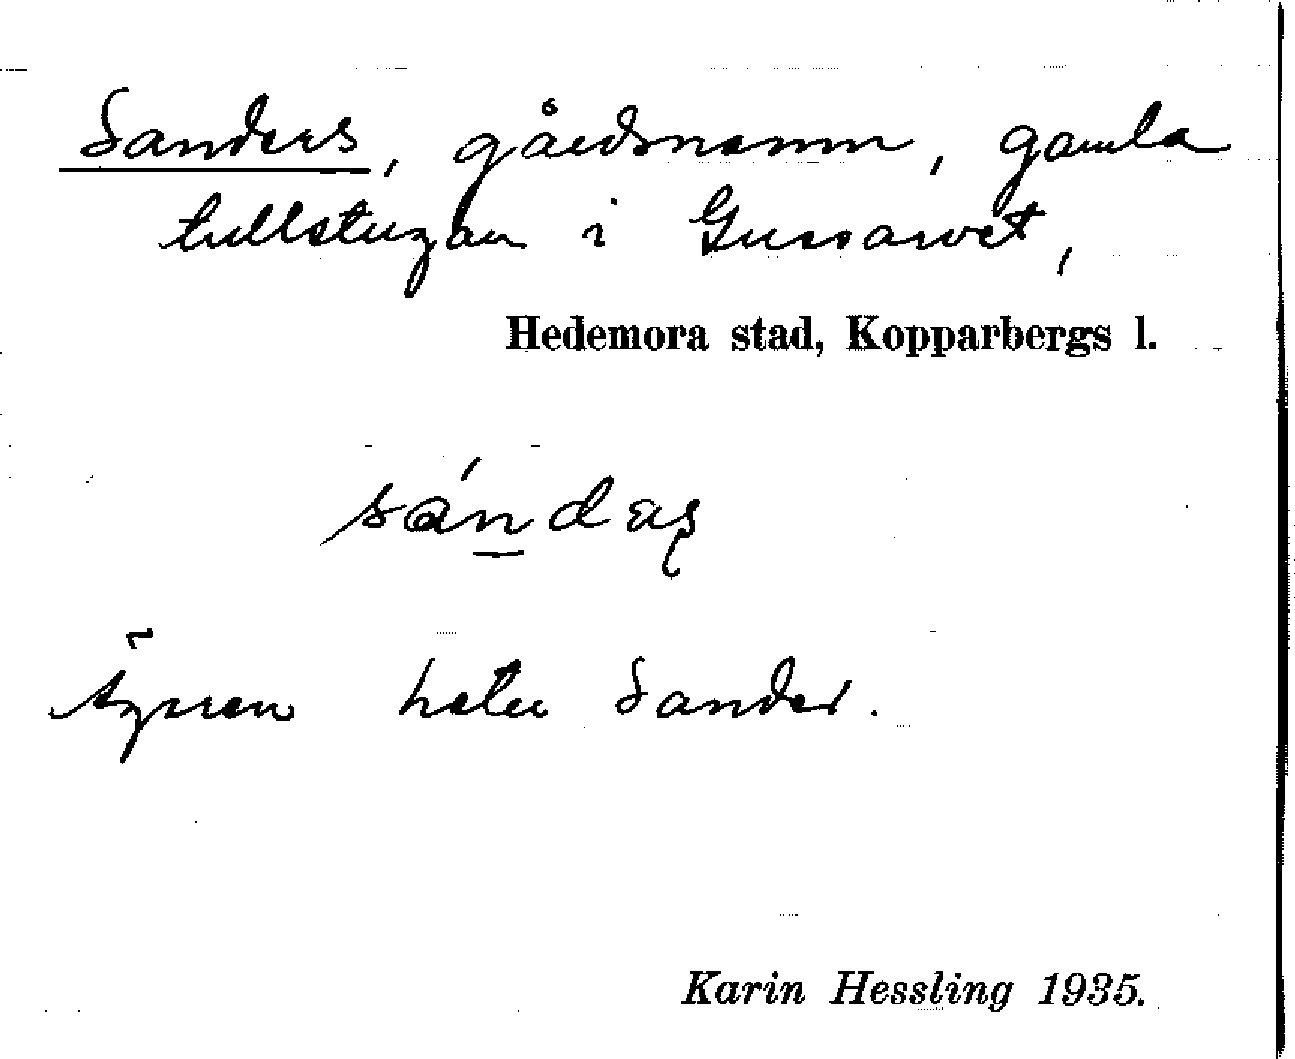 Sanders, gårdsnamn, gamla
tullstugan i Gussarvet,
Hedemora stad, Kopparbergs l.
Ägaren heter Sander.
Karin Hessling 1935.